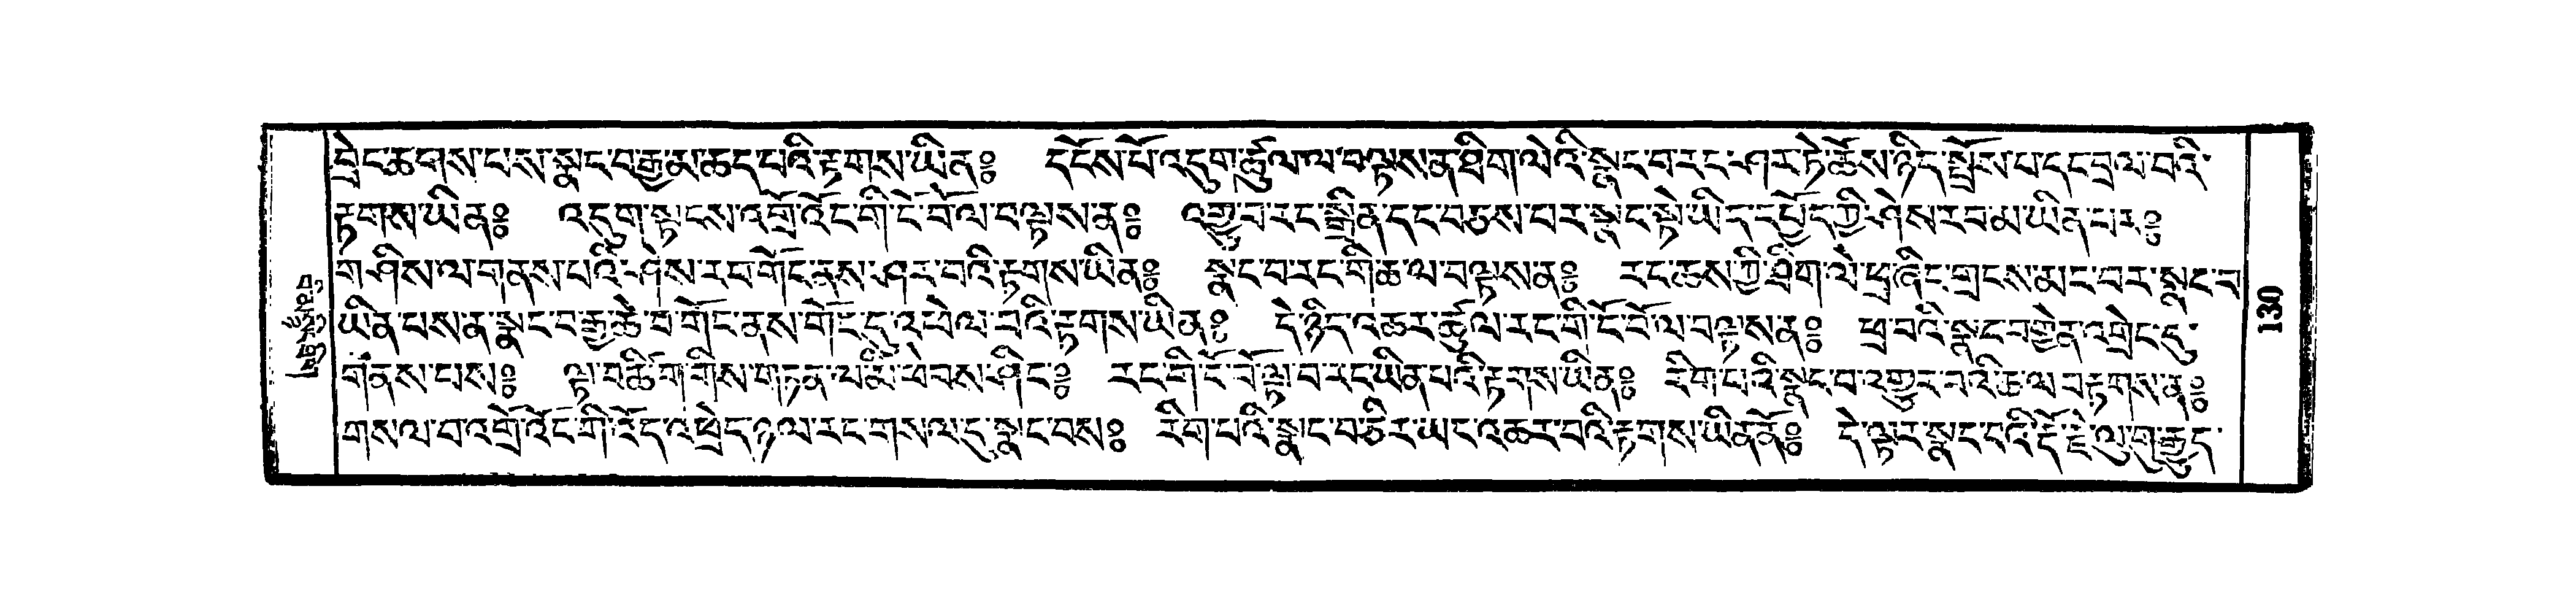 བྲེང་ཆགས་པས་སྣང་བ་རྒྱ་མ་ཆད་པའི་རྟགས་ཡིན༔ དངོས་པོ་འདུག་ཚུལ་ལ་བལྟས་ན་ཐིག་ལེའི་སྣང་བ་རང་ཤར་ཏེ་ཆོས་ཉིད་སྤྲོས་པ་དང་བྲལ་བའི་
རྟགས་ཡིན༔ འདུག་སྟངས་འགྲོ་འོང་གི་ངོ་བོ་ལ་བལྟས་ན༔ འགྱུ་བ་རང་སྨིན་དང་བཅས་པར་སྣང་སྟེ་ཡིད་དཔྱོད་ཀྱི་ཤེས་རབ་མ་ཡིན་པར༔
གཤིས་ལ་གནས་པའི་ཤེས་རབ་གོང་ནས་ཤར་བའི་རྟགས་ཡིན༔ སྣང་བ་རང་གི་ཆ་ལ་བལྟས་ན༔ རང་ཆས་ཀྱི་ཐིག་ལེ་ཕྲ་ཞིང་གྲངས་མང་བར་སྣང་བ་
ཡིན་པས་ན་སྣང་བ་རྒྱ་ཆེ་བ་གོང་ནས་གོང་དུ་འཕེལ་བའི་རྟགས་ཡིན༔ དེ་ཉིད་འཆར་ཚུལ་རང་གི་ངོ་བོ་ལ་བལྟས་ན༔ ཕྲ་བའི་སྣང་བ་གྱེན་འགྲེང་དུ་
གནས་པས༔ ལྟ་བ་ཚིག་གིས་གཏན་ལ་མི་ཕེབས་ཤིང༔ རང་གི་ངོ་བོ་ལྟ་བ་རང་ཡིན་པའི་རྟགས་ཡིན༔ རིག་པའི་སྣང་བ་འགྱུར་བའི་ཆ་ལ་བརྟགས་ན༔
གསལ་བ་འགྲོ་འོང་གི་འོད་འཕྲེད་ཉལ་རང་གསལ་དུ་སྣང་བས༔ རིག་པའི་སྣང་བ་ཅིར་ཡང་འཆར་བའི་རྟགས་ཡིན་ནོ༔ དེ་ལྟར་སྣང་བའི་རྡོ་རྗེ་ལུ་གུ་རྒྱུད་